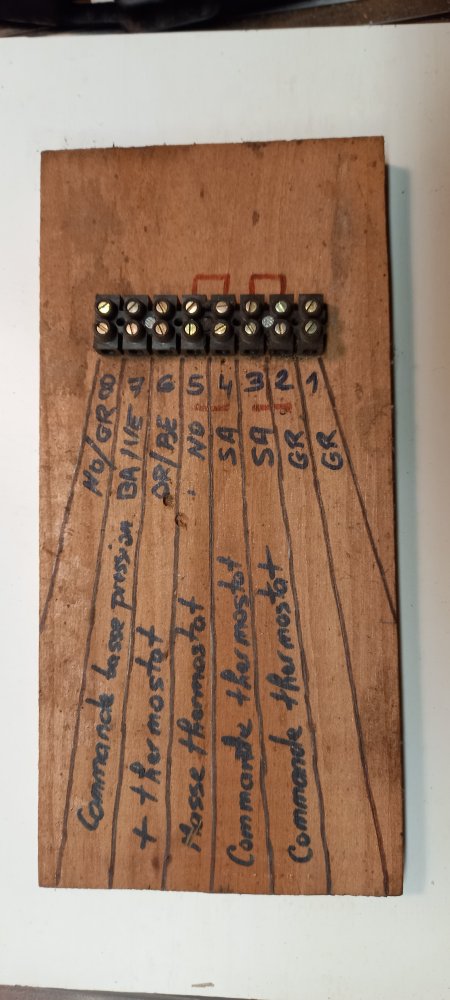 8 7 6 5 4 3 2 1
NO/GR
BA/VE
OR/BE
NO
SA
SA
GR
GR
Commande basse pression
+ thermostat
Masse thermostat
Commande thermostat
Commande thermostat